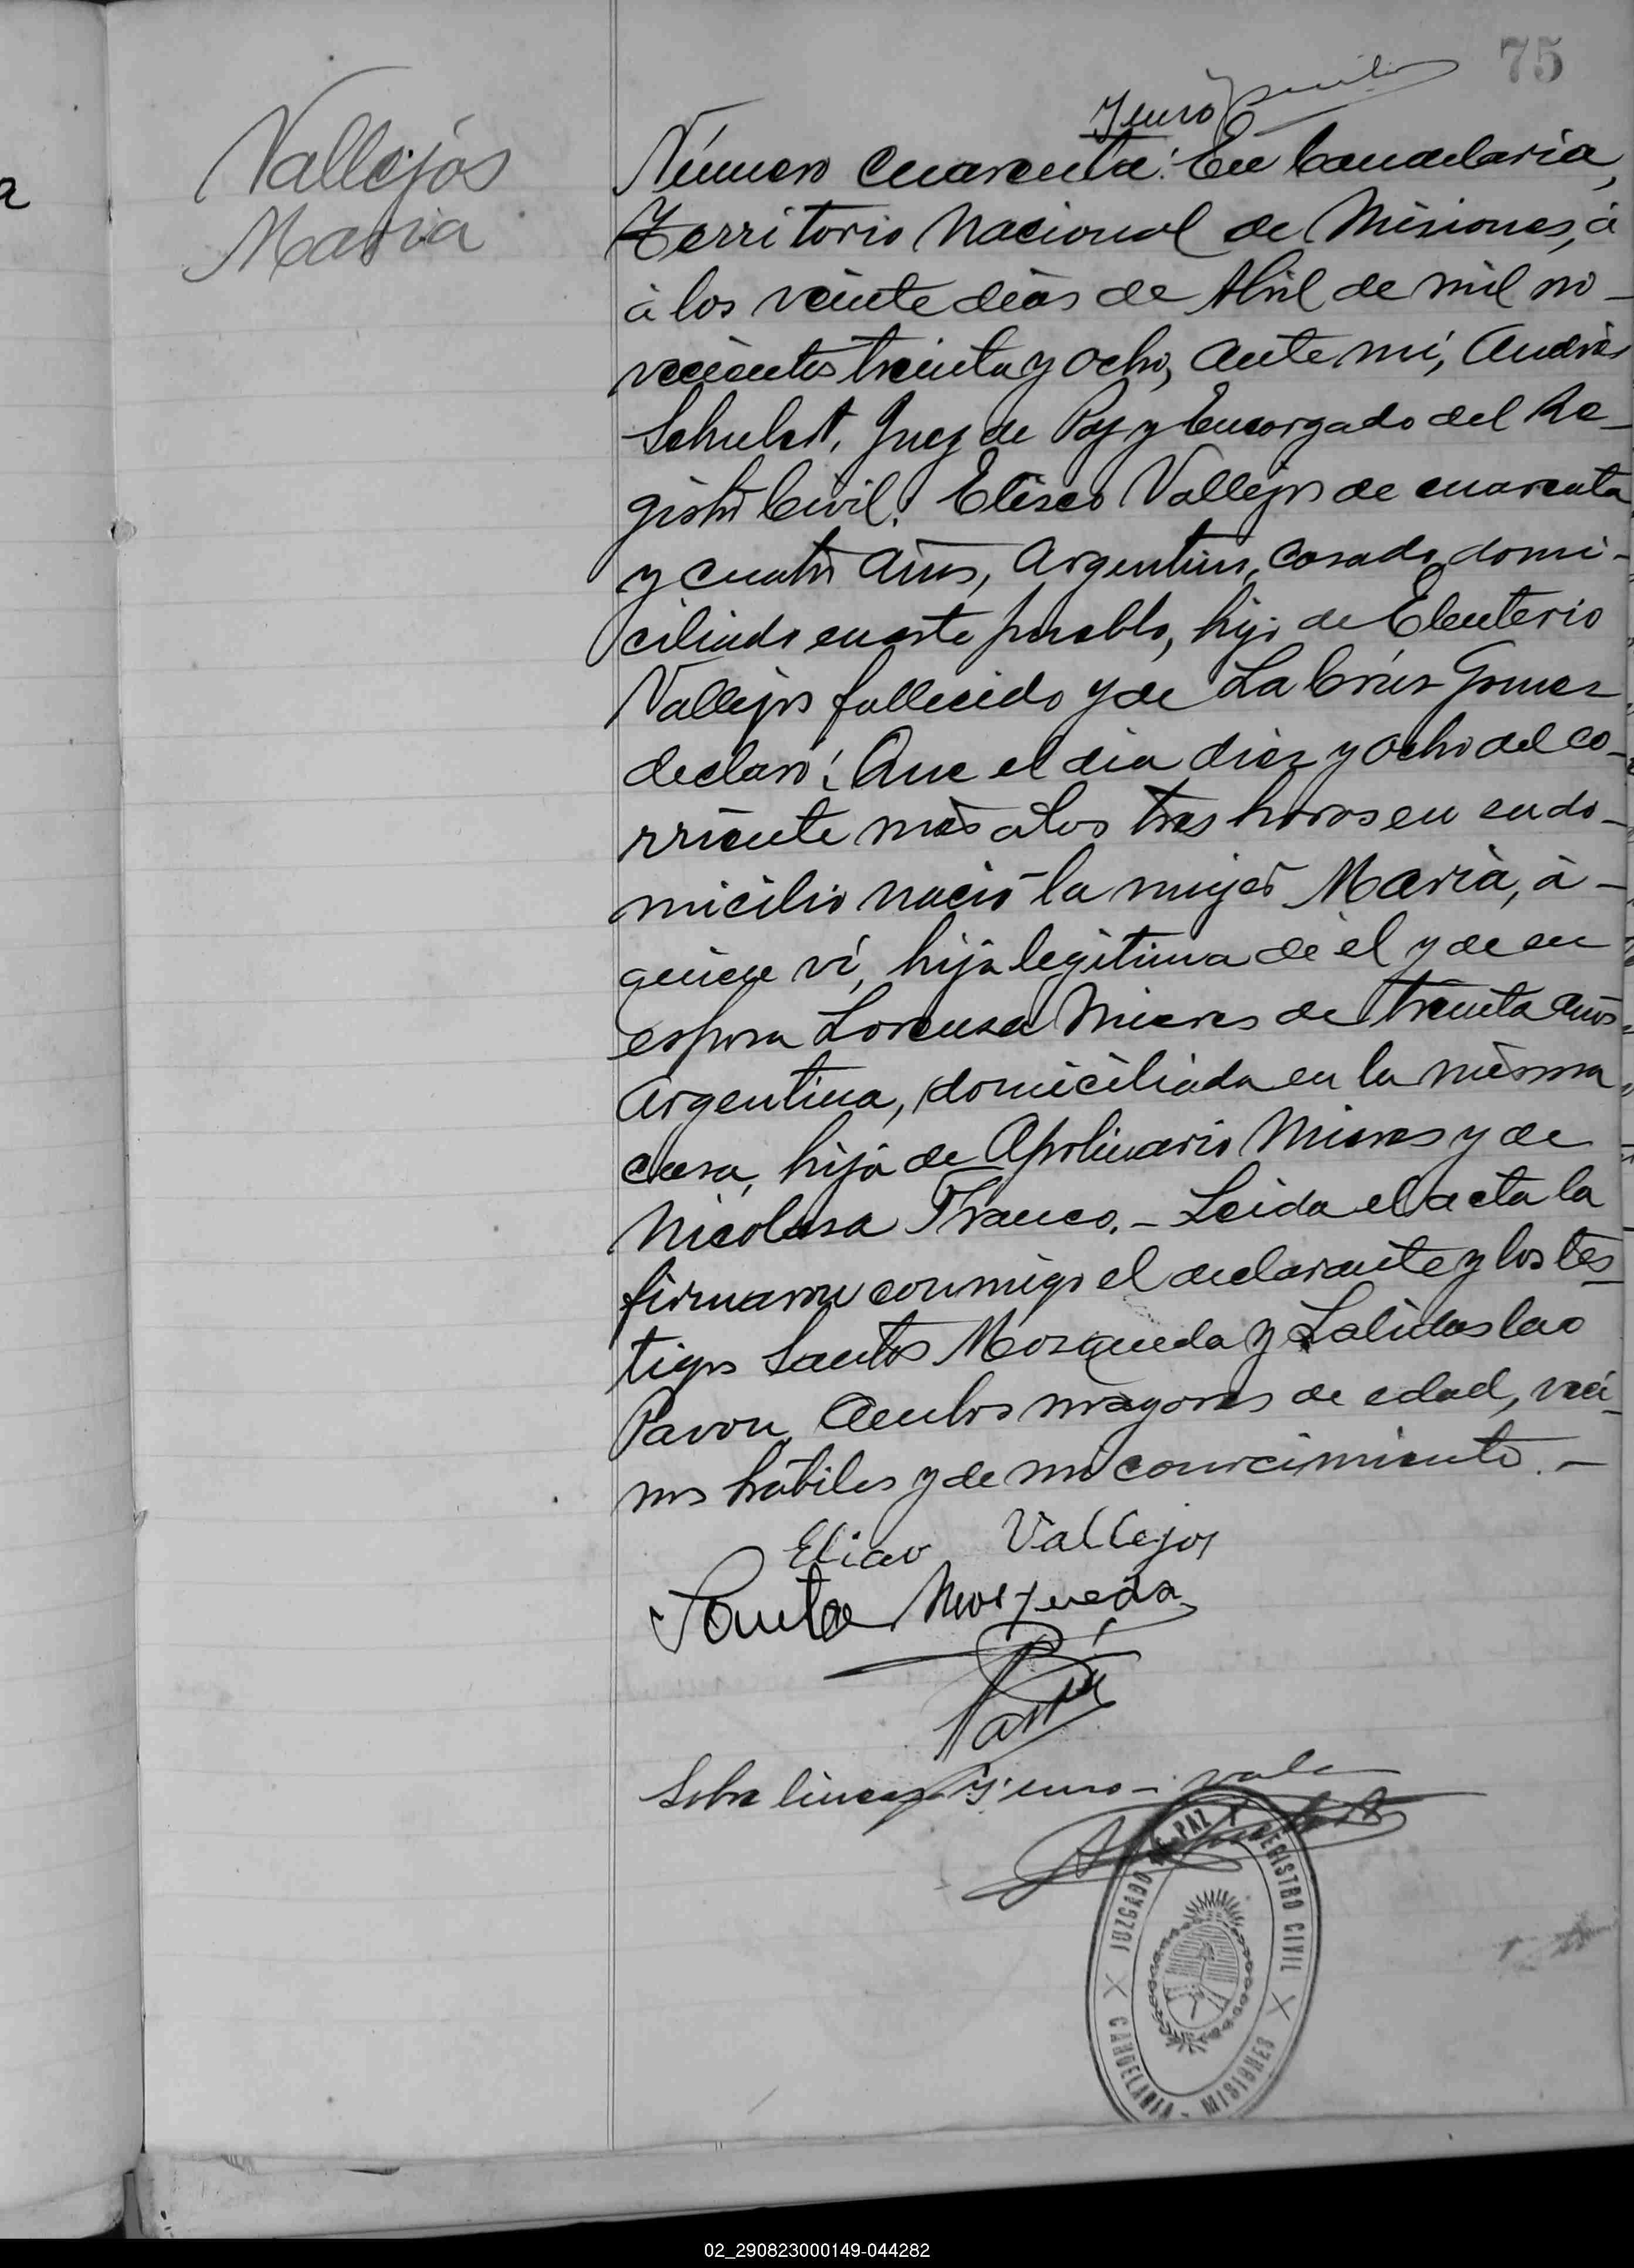 75
Vallejos
Maria
y uno
Número cuarenta: En Candelaria,
Territorio Nacional de Misiones, á
á los veinte dias de Abril de mil no-
vecientos treinta y ocho, ante mí, Andrés
Schubert, Juez de Paz y Encargado del Re-
gistro Civil: Eliseo Vallejos de cuarenta
y cuatro años, Argentino, casado, domi-
ciliado en este pueblo, hijo de Eleuterio
Vallejos fallecido y de La Cruz Gomez
declaró: Que el dia diez y ocho del co-
rriente mes a las tres horas en su do-
micilio nació la mujer Maria, á-
quien ví, hija legitima de el y de su
esposa Lorenza Mieres de treinta años
Argentina, domiciliada en la misma
casa, hija de Apolinario Mieres y de
Nicolasa Franco.- Leida el acta la
firmaron conmigo el declarante y los tes-
tigos Santos Mosqueda y Ladislao
Pavon, Ambos mayores de edad, veci-
nos hábiles y de mi conocimiento.-
Vallejos
Mosqueda
Sobre lineas y uno - vale
JUZGADO DE PAZ Y REGISTRO CIVIL
CANDELARIA - MISIONES
02_290823000149-044282